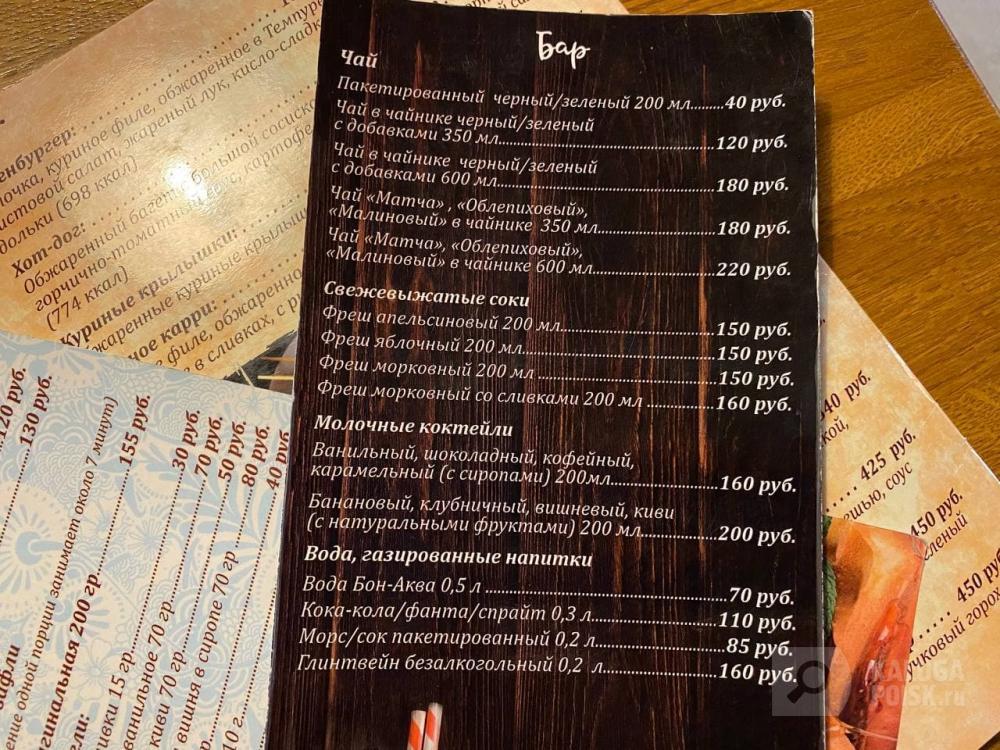 Бар
Чай
Пакетированный черный/зеленый 200 мл.........40 руб.
Чай в чайнике черный/зеленый
с добавками 350 мл.......................................120 руб.
Чай в чайнике черный/зеленый
с добавками 600 мл.......................................180 руб.
Чай «Матча» , «Облепиховый»,
«Малиновый» в чайнике 350 мл.....................180 руб.
Чай «Матча», «Облепиховый»,
«Малиновый» в чайнике 600 мл......................220 руб.
Свежевыжатые соки
Фреш апельсиновый 200 мл............................150 руб.
Фреш яблочный 200 мл...................................150 руб.
Фреш морковный 200 мл ................................150 руб.
Фреш морковный со сливками 200 мл ............160 руб.
Молочные коктейли
Ванильный, шоколадный, кофейный,
карамельный (с сиропами) 200мл...................160 руб.
Банановый, клубничный, вишневый, киви
(с натуральными фруктами) 200 мл.............200 руб.
Вода, газированные напитки
Вода Бон-Аква 0,5 л ...........................................70 руб.
Кока-кола/фанта/спрайт 0,3 л......................110 руб.
Морс/сок пакетированный 0,2 л.......................85 руб.
Глинтвейн безалкогольный 0,2 л....................160 руб.
обжаренное в Темпуре
куриное филе, обжаренное
истовой салат, жареный лук, кисло-слад
дольки (698 ккал)
Хот-дог:
Обжаренный багет, большой сосиск
горчично-томатный соус, картофе
(774 ккал)
Куриные крылышки:
жаренные куриные крылыш
ное карри:
е филе, обжаренно
в сливках, с р
120 руб.
130 руб.
ие одной порции занимает около 7 минут)
гинальная 200 гр. 155 руб.
ивки 15 гр 30 руб.
ванильное 70 гр. 70 руб.
киви 70 гр. 50 руб.
вишня в сиропе 70 гр 80 руб.
10 г. 40 руб.
340 руб.
кой,
425 руб.
ешью, соус
450 руб.
еленый
450 руб.
учковый горох
KALUGA
POISK.ru